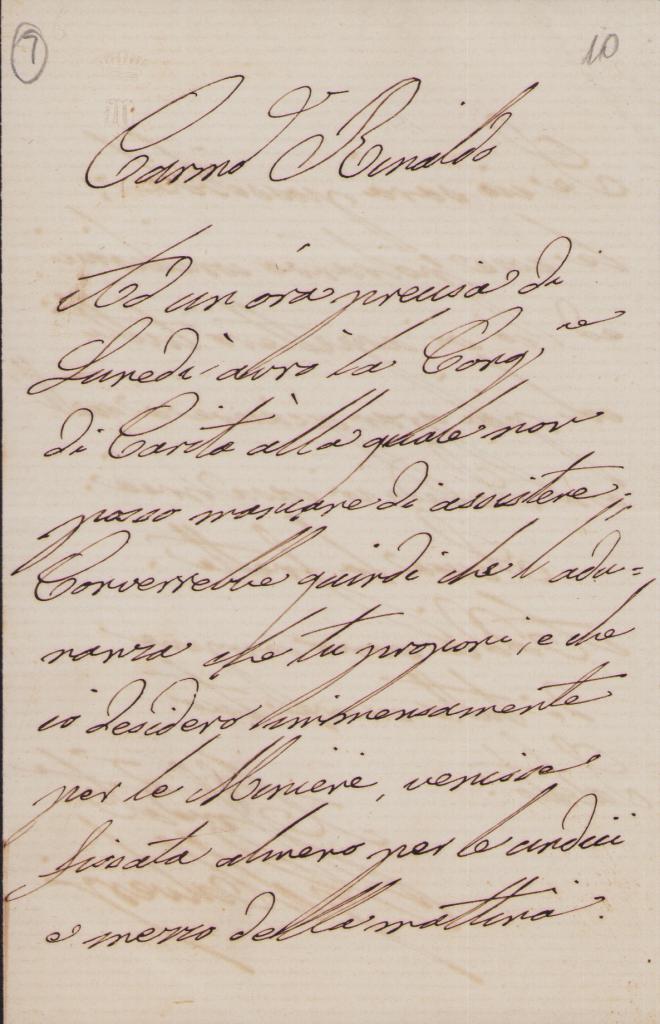 7
10
Carmo Rinaldo
Ad un'ora precisa di
Lunedì avrò la Cong.ne
di Carità alla quale non
posso mancare di assistere.
Converrebbe quindi che l'adu=
nanza che tu proponi, e che
io desidero immensamente
per le Miniere, venisse
fissata almeno per le undici
e mezzo della mattina.